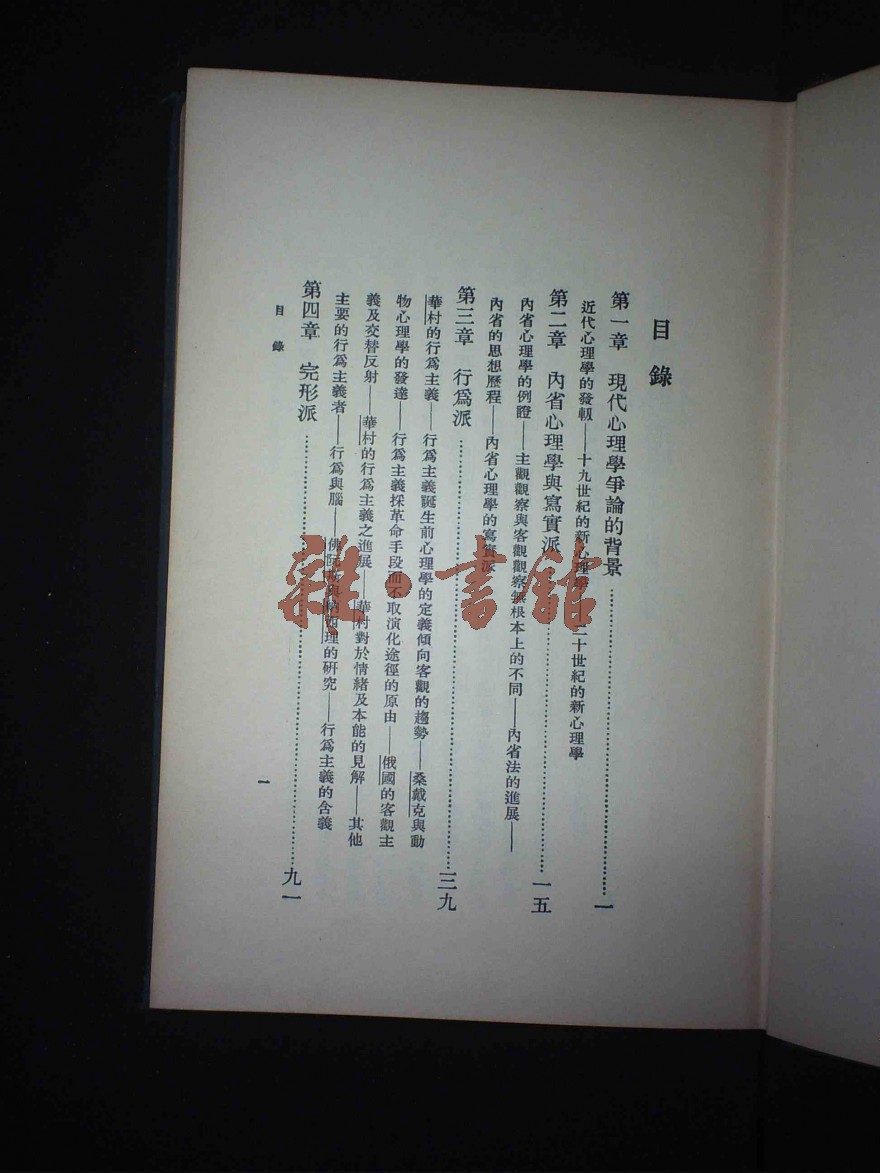 目錄
第一章 現代心理學爭論的背景…………一
近代心理學的發軔——十九世紀的新心理學——二十世紀的新心理學
第二章 內省心理學與寫實派…………一五
內省心理學的例證——主觀觀察與客觀觀察無根本上的不同——內省法的進展——
內省的思想歷程——內省心理學的寫實派
第三章 行爲派…………三九
華村的行爲主義——行爲主義誕生前心理學的定義傾向客觀的趨勢——桑戴克與動
物心理學的發達——行爲主義採革命手段而不取演化途徑的原由——俄國的客觀主
義及交替反射——華村的行爲主義之進展——華村對於情緒及本能的見解——其他
主要的行爲主義者——行爲與腦——佛與理的研究——行爲主義的含義
第四章 完形派…………九一
目錄
一
雜·書館